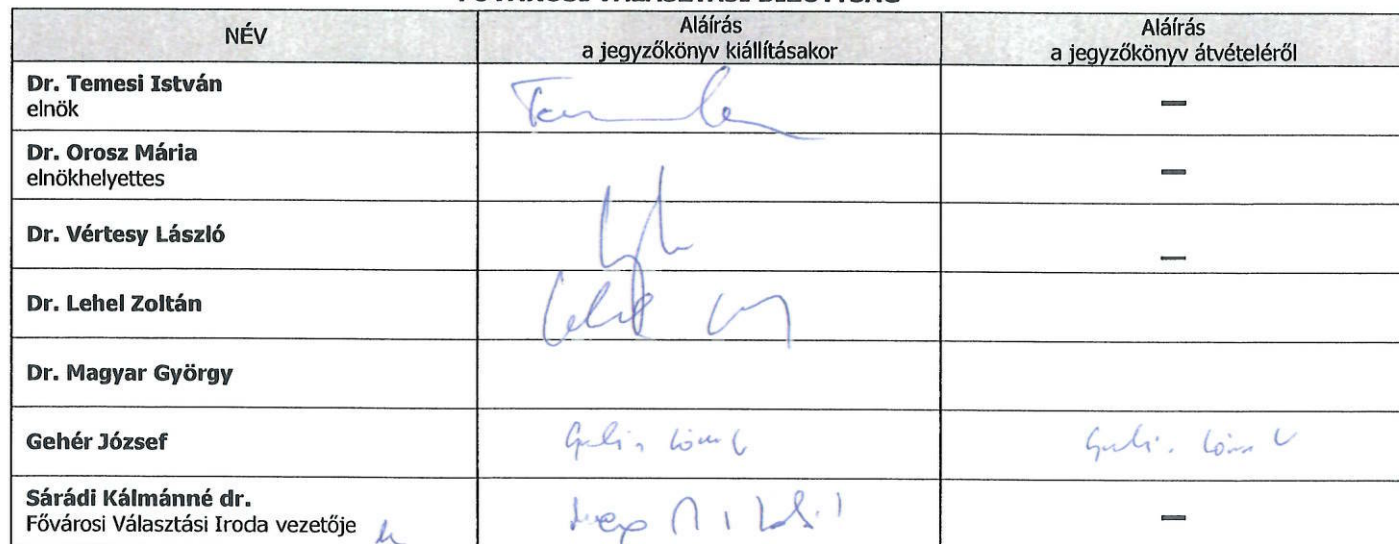 NÉV
Aláírás
a jegyzőkönyv kiállításakor
Aláírás
a jegyzőkönyv átvételéről
Dr. Temesi István
elnök
—
Dr. Orosz Mária
elnökhelyettes
—
Dr. Vértesy László
—
Dr. Lehel Zoltán
Dr. Magyar György
Gehér József
Sárádi Kálmánné dr.
Fővárosi Választási Iroda vezetője
—